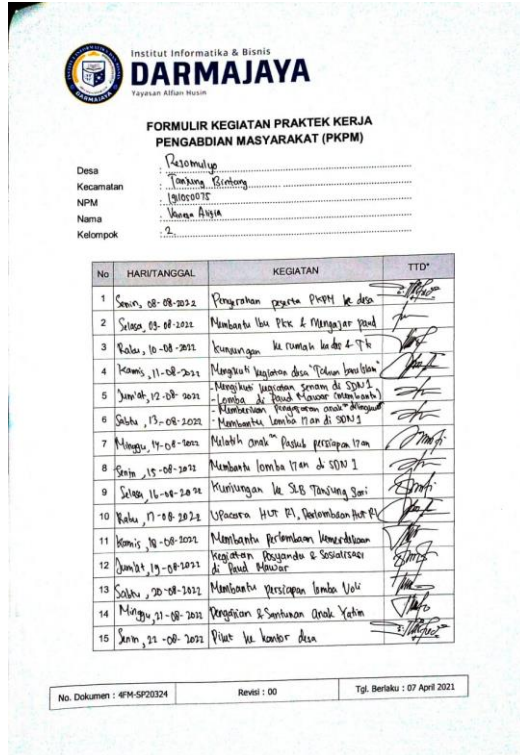 Institut Informatika & Bisnis
DARMAJAYA
Yayasan Alfian Husin
DARMAJAYA
FORMULIR KEGIATAN PRAKTEK KERJA
PENGABDIAN MASYARAKAT (PKPM)
Desa : Rejomulyo
Kecamatan : Tanjung Bintang
NPM : 191050075
Nama : Vanesa
Kelompok : 2
No HARI/TANGGAL KEGIATAN TTD*
1 Senin, 08-08-2022 Penyerahan peserta PKPM ke desa
2 Selasa, 09-08-2022 Membantu Ibu PKK & Mengajar paud
3 Rabu, 10-08-2022 Kunjungan ke rumah kades & TK
4 Kamis, 11-08-2022 Mengikuti kegiatan desa "Tahun baru Islam"
5 Jum'at, 12-08-2022 - Mengikuti kegiatan senam di SDN 1
- Lomba di Paud Mawar (membantu)
6 Sabtu, 13-08-2022 - Memberikan Pengajaran anak"
- Membantu lomba 17an di SDN 1
7 Minggu, 14-08-2022 Melatih anak" Paskib persiapan 17an
8 Senin, 15-08-2022 Membantu lomba 17an di SDN 1
9 Selasa, 16-08-2022 Kunjungan ke SLB Tanjung Sari
10 Rabu, 17-08-2022 Upacara HUT RI, Perlombaan HUT RI
11 Kamis, 18-08-2022 Membantu perlombaan kemerdekaan
12 Jum'at, 19-08-2022 Kegiatan Posyandu & Sosialisasi
di Paud Mawar
13 Sabtu, 20-08-2022 Membantu persiapan lomba Voli
14 Minggu, 21-08-2022 Pengajian & Santunan anak Yatim
15 Senin, 22-08-2022 Piket ke kantor desa
No. Dokumen : 4FM-SP20324 Revisi : 00 Tgl. Berlaku : 07 April 2021